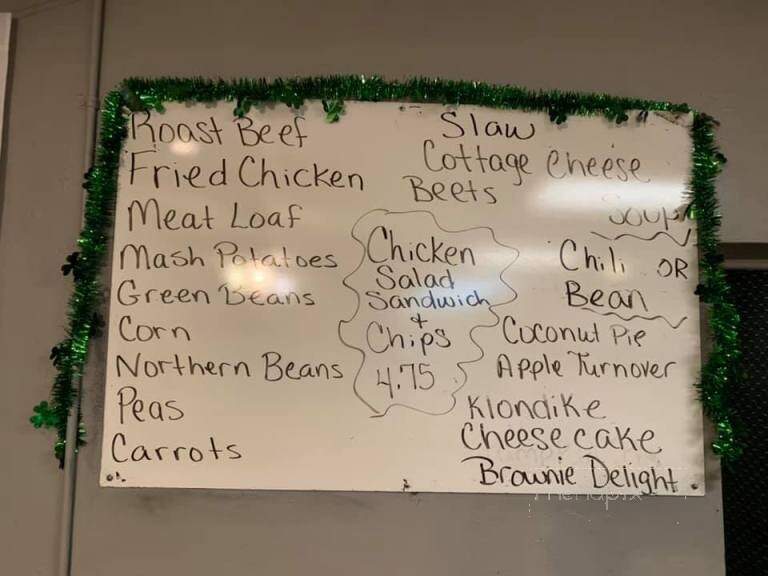 Roast Beef
Fried Chicken
Meat Loaf
Mash Potatoes
Green Beans
Corn
Northern Beans
Peas
Carrots
Slaw
Cottage Cheese
Beets
Chicken
Salad
Sandwich
+
Chips
4.75
Soup
Chili OR
Bean
Coconut Pie
Apple Turnover
Klondike
Cheese cake
Brownie Delight